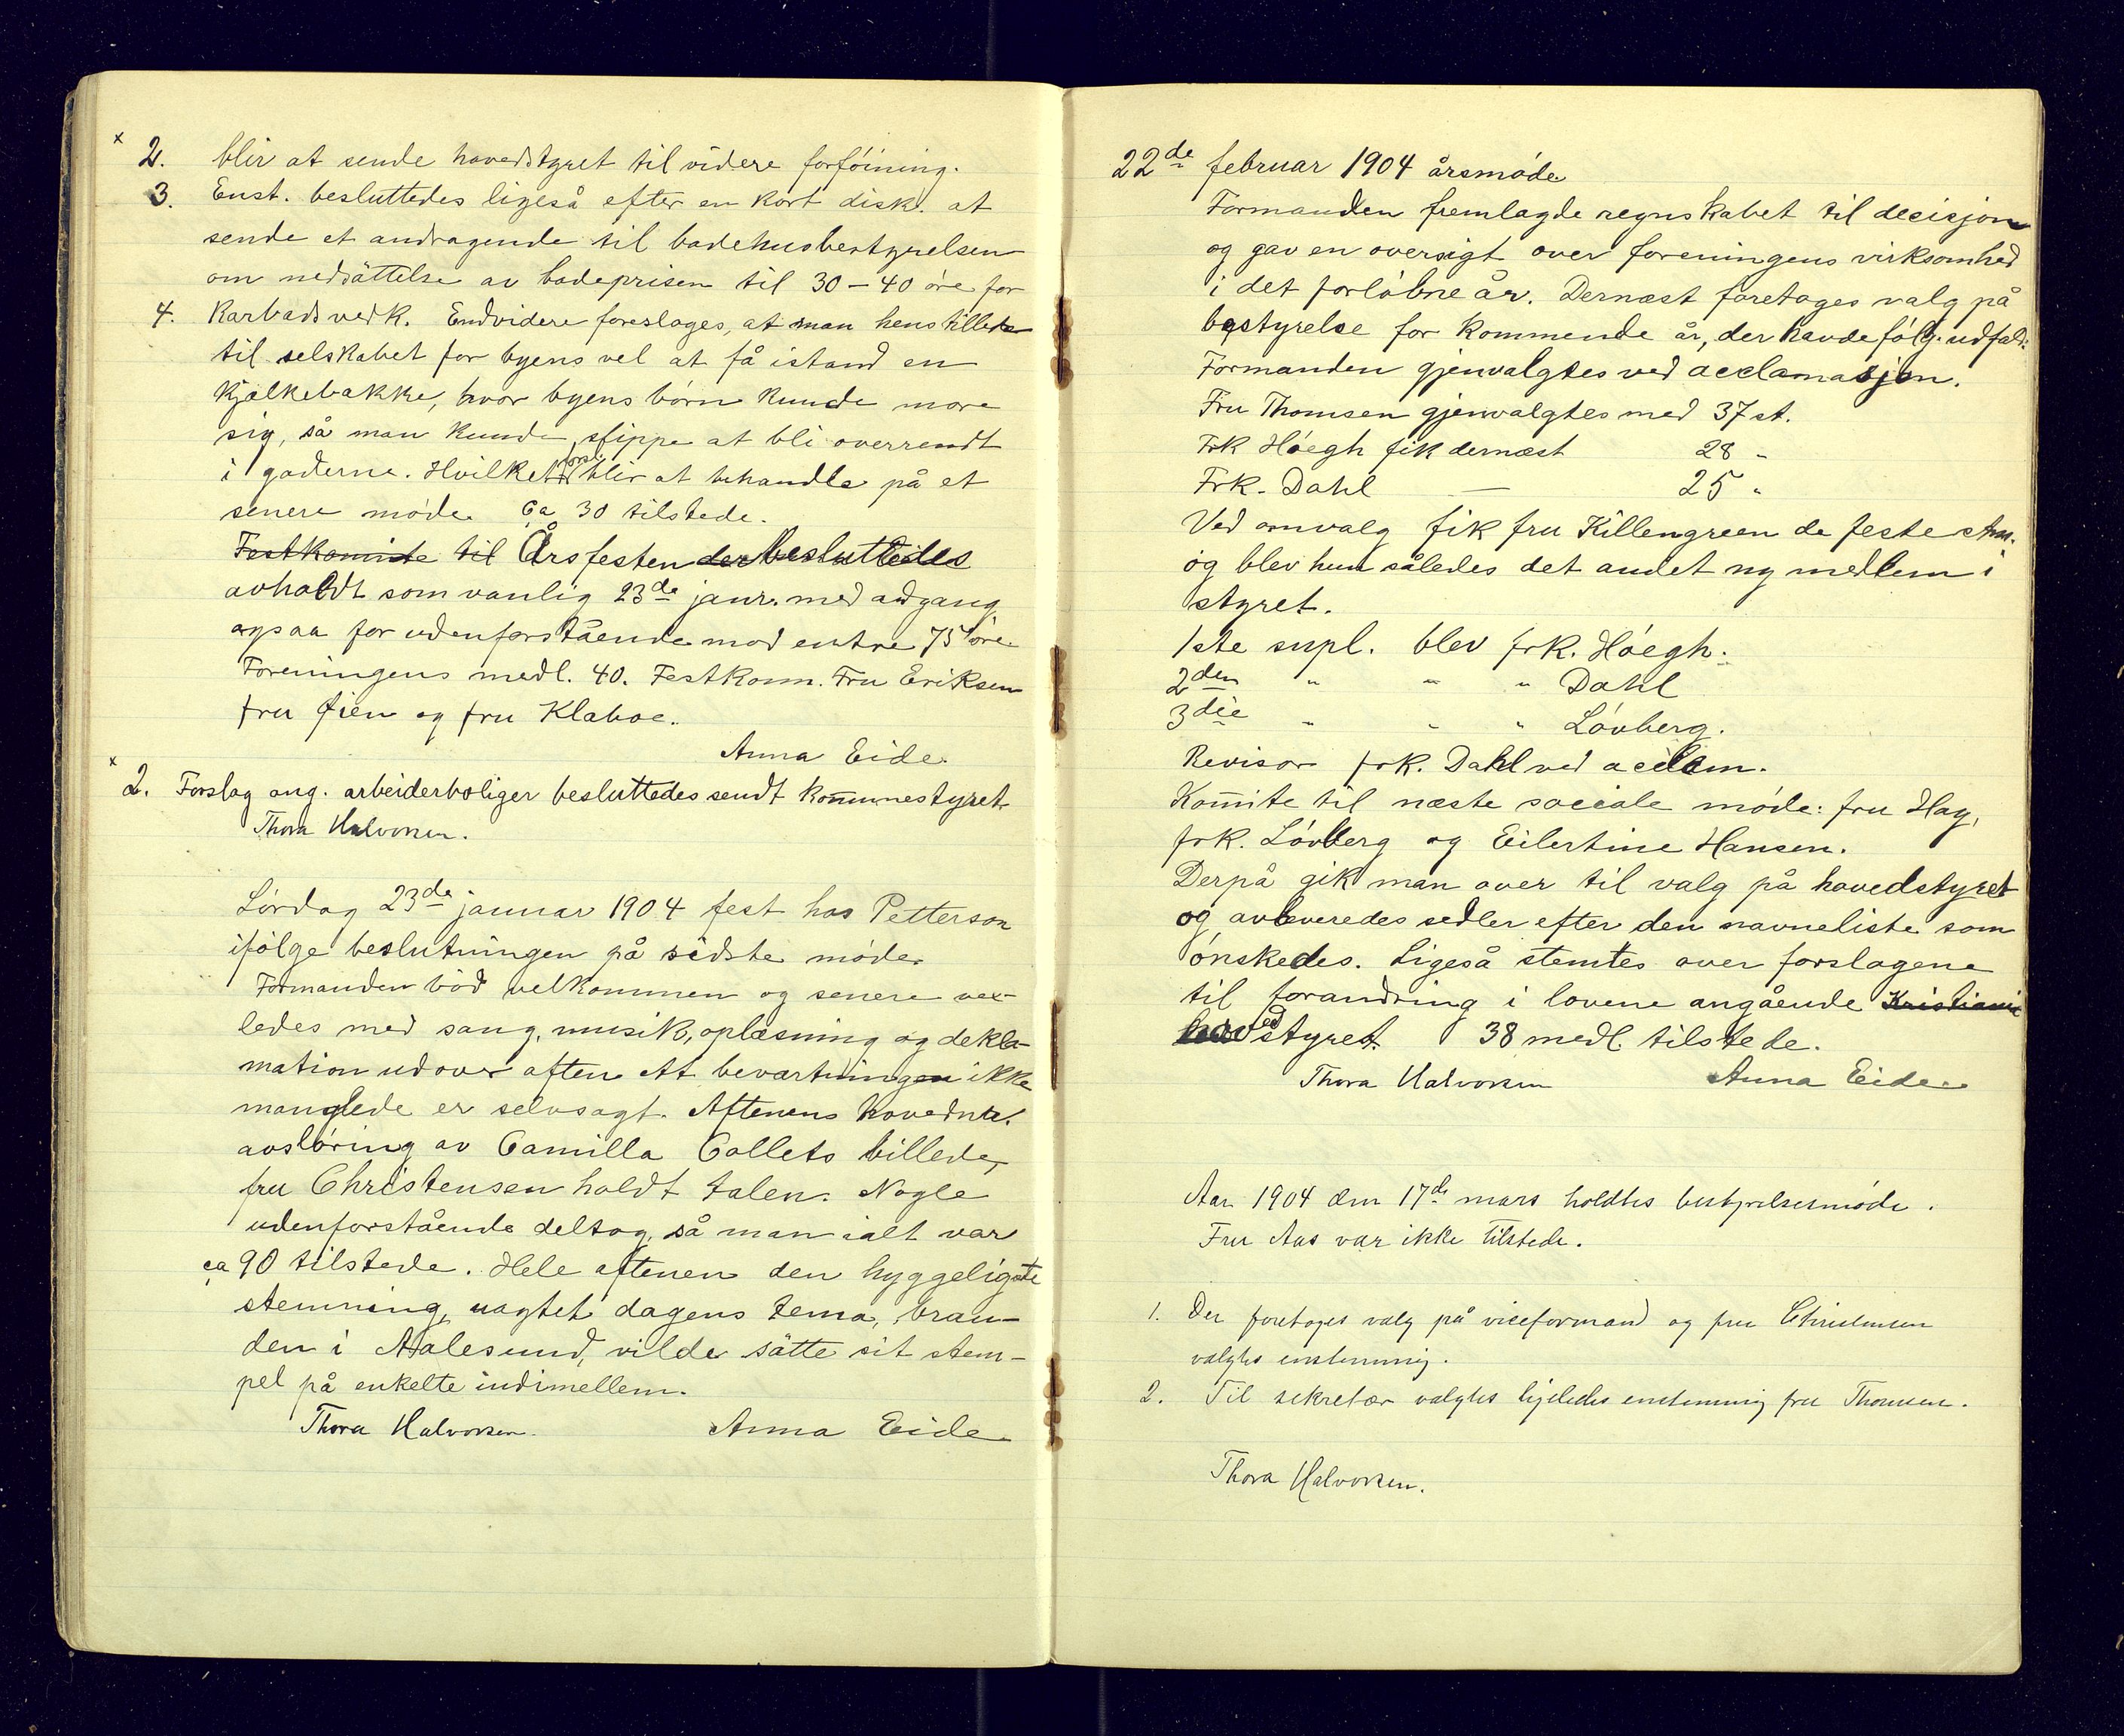 x 2. blir at sende hovedstyret til videre forföining.
3. Enst. besluttedes ligeså efter en kort disk. at
sende et andragende til badehusbestyrelsen
om nedsättelse av badeprisen til 30 – 40 öre for
4. Karbads vedk. Endvidere foreslages, at man henstillede
til selskabet for byens vel at få istand en
Kjælkebakke, hvor byens börn kunde more
sig, så man kunde slippe at bli overrendt
i gaderne. Hvilket forsl. blir at behandle på et
senere möde. Ca 30 tilstede.
Festkomite til Årsfesten der besluttedes
avholdt som vanlig 23de janr. med adgang
ogsaa for udenforstående mod entre 75 öre
Foreningens medl. 40. Festkom. Fru Eriksen
fru Øien og fru Klaboe.
Anna Eide.
x 2. Forslag ang. arbeiderboliger besluttedes sendt kommunestyret
Thora Halvorsen.
Lördag 23de januar 1904 fest hos Petterson
ifölge beslutningen på sidste möde.
Formanden böd velkommen og senere vex-
ledes med sang, musik, oplæsning og dekla-
mation udover aften At bevartningen ikke
manglede er selvsagt. Aftenens hovednr.
avslöring av Camilla Collets billede,
fru Christensen holdt talen. Nogle
udenforstående deltog, så man ialt var
ca 90 tilstede. Hele aftenen den hyggeligste
stemning, uagtet dagens tema, bran-
den i Aalesund, vilde sätte sit stem-
pel på enkelte indimellem.
Thora Halvorsen. Anna Eide
22de februar 1904 årsmöde
Formanden fremlagde regnskabet til decisjon
og gav en oversigt over foreningens virksomhed
i det forlöbne år. Dernæst foretages valg på
bestyrelse for kommende år, der havde fölg. udfald:
Formanden gjenvalgtes ved acclamasjon.
Fru Thomsen gjenvalgtes med 37 st.
Frk Höegh fik dernæst 28 "
Frk. Dahl — 25 "
Ved omvalg fik fru Killengreen de feste stm.
og blev hun således det andet ny medlem i
styret.
1ste supl. blev frk. Höegh.
2den " " " Dahl
3die " " " Lövberg.
Revisor frk. Dahl ved acclam.
Komite til næste sociale möde: fru Hag,
frk. Lövberg og Eilertine Hansen.
Derpå gik man over til valg på hovedstyret
og avleveredes sedler efter den navneliste som
önskedes. Ligeså stemtes over forslagene
til forandring i lovene angående Kristiania
hovedstyret. 38 medl. tilstede.
Thora Halvorsen Anna Eide.
Aar 1904 den 17de mars holdtes bestyrelsesmöde.
Fru Aas var ikke tilstede.
1. Der foretages valg på viceformand og fru Christensen
valgtes enstemmig.
2. Til sekretær valgtes ligeledes enstemmig fru Thomsen.
Thora Halvorsen.